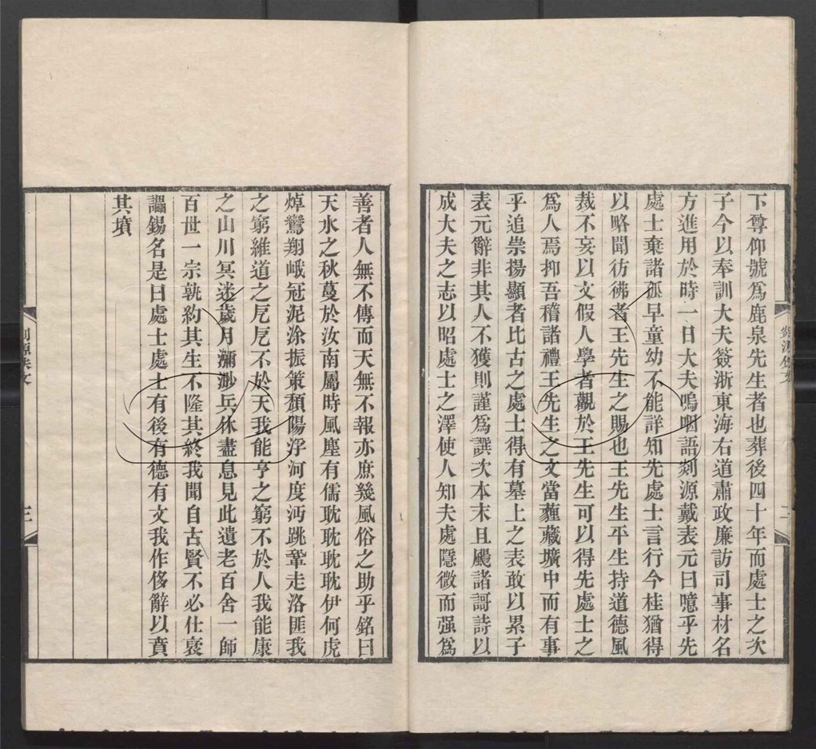 下尊仰號為鹿泉先生者也葬後四十年而處士之次
子今以奉訓大夫簽浙東海右道肅政廉訪司事材名
方進用於時一日大夫嗚咽語剡源戴表元曰噫乎先
處士棄諸孤早童幼不能詳知先處士言行今桂猶得
以略聞彷彿者王先生之賜也王先生平生持道德風
裁不妄以文假人學者觀於王先生可以得先處士之
為人焉抑吾稽諸禮王先生之文當薶藏壙中而有事
乎追崇揚顯者比古之處士得有墓上之表敢以累子
表元辭非其人不獲則謹為譔次本末且颺諸謌詩以
成大夫之志以昭處士之澤使人知夫處隱微而强為
二
善者人無不傳而天無不報亦庶幾風俗之助乎銘曰
天水之秋蔓於汝南屬時風塵有儒耽耽耽耽伊何虎
焯鸞翔峨冠泥涂振策頽陽浮河度沔跳鞏走洛匪我
之窮維道之戹戹不於天我能亨之窮不於人我能康
之山川冥迷歲月瀰渺兵休盡息見此遺老百舍一師
百世一宗孰約其生不隆其終我聞自古賢不必仕裒
諨錫名是曰處士處士有後有德有文我作侈辭以賁
其墳
剡源佚文
三